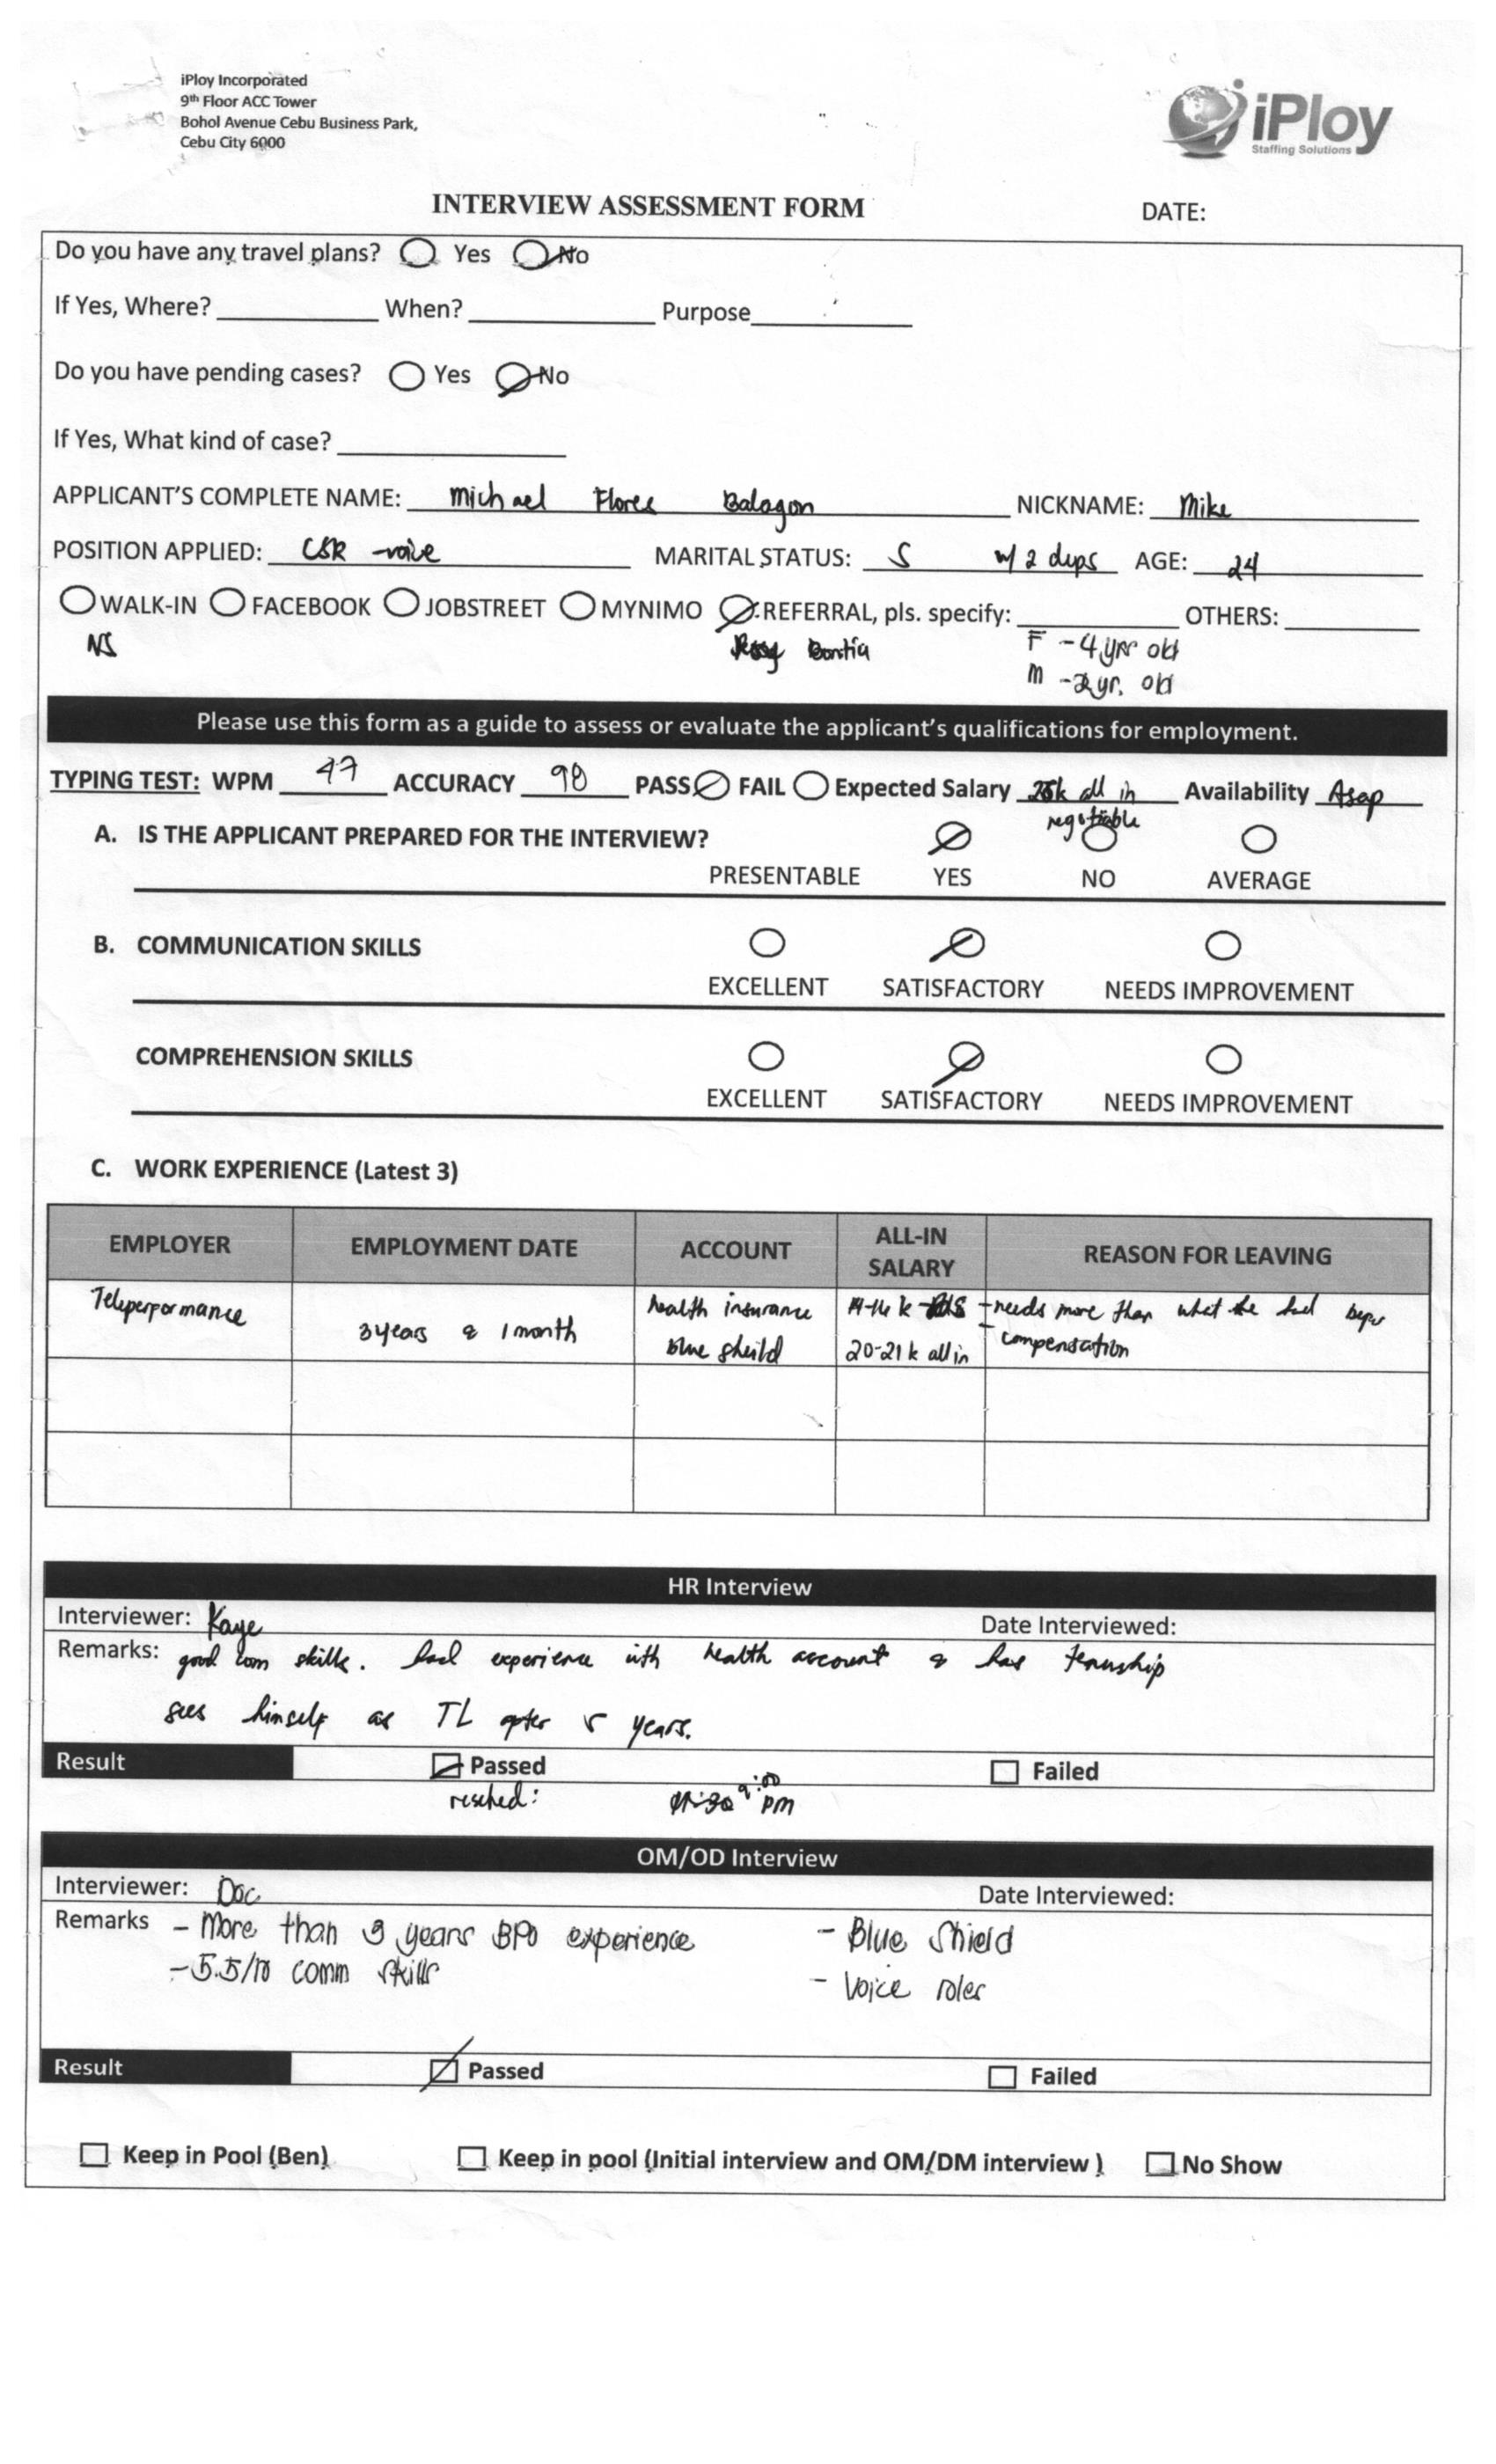 iPloy Incorporated
9th Floor ACC Tower
Bohol Avenue Cebu Business Park,
Cebu City 6000
iPloy
Staffing Solutions
INTERVIEW ASSESSMENT FORM DATE:
Do you have any travel plans? Yes No
If Yes, Where? When? Purpose
Do you have pending cases? Yes No
If Yes, What kind of case?
APPLICANT'S COMPLETE NAME: Michael Flores Balagon NICKNAME: Mike
POSITION APPLIED: CSR -voice MARITAL STATUS: S w/ 2 deps AGE: 24
WALK-IN FACEBOOK JOBSTREET MYNIMO REFERRAL, pls. specify: OTHERS:
NS Bontia F - 4 yrs old
M - 2 yr. old
Please use this form as a guide to assess or evaluate the applicant's qualifications for employment.
TYPING TEST: WPM 47 ACCURACY 98 PASS FAIL Expected Salary 25k all in Availability Asap
negotiable
A. IS THE APPLICANT PREPARED FOR THE INTERVIEW?
PRESENTABLE YES NO AVERAGE
B. COMMUNICATION SKILLS
EXCELLENT SATISFACTORY NEEDS IMPROVEMENT
COMPREHENSION SKILLS
EXCELLENT SATISFACTORY NEEDS IMPROVEMENT
C. WORK EXPERIENCE (Latest 3)
EMPLOYER EMPLOYMENT DATE ACCOUNT ALL-IN SALARY REASON FOR LEAVING
Teleperformance 3 years & 1 month health insurance 14-16 k - needs more than what he had
blue sheild 20-21 k all in - compensation
HR Interview
Interviewer: Kaye Date Interviewed:
Remarks: good com skills. had experience with health account & has tenurship
sees himself as TL after 5 years.
Result Passed Failed
resched: 9:00 pm
OM/OD Interview
Interviewer: Doc Date Interviewed:
Remarks - More than 3 years BPO experience - Blue Shield
- 5.5/10 comm skills - Voice roles
Result Passed Failed
Keep in Pool (Ben) Keep in pool (Initial interview and OM/DM interview ) No Show